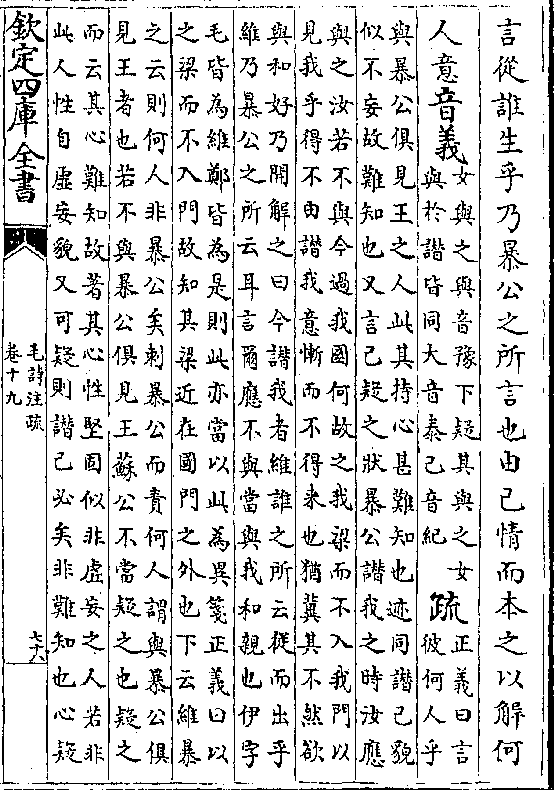 言從誰生乎乃暴公之所言也由己情而本之以解何
人意音義女與之與音豫下疑其與之女
與於譖皆同大音泰己音紀疏正義曰言
彼何人乎
與暴公俱見王之人此其持心甚難知也迹同譖己貌
似不妄故難知也又言己疑之狀暴公譖我之時汝應
與之汝若不與今過我國何故之我梁而不入我門以
見我乎得不由譖我意慚而不得來也猶冀其不然欲
與和好乃開解之曰今譖我者維誰之所云從而出乎
維乃暴公之所云耳言爾應不與當與我和親也伊字
毛皆為維鄭皆為是則此亦當以此為異箋正義曰以
之梁而不入門故知其梁近在國門之外也下云維暴
之云則何人非暴公矣刺暴公而責何人謂與暴公俱
見王者也若不與暴公俱見王蘇公不當疑之也疑之
而云其心難知故著其心性堅固似非虛妄之人若非
此人性自虛妄貌又可疑則譖己必矣非難知也心疑
欽定四庫全書
毛詩注疏
卷十九
七十八